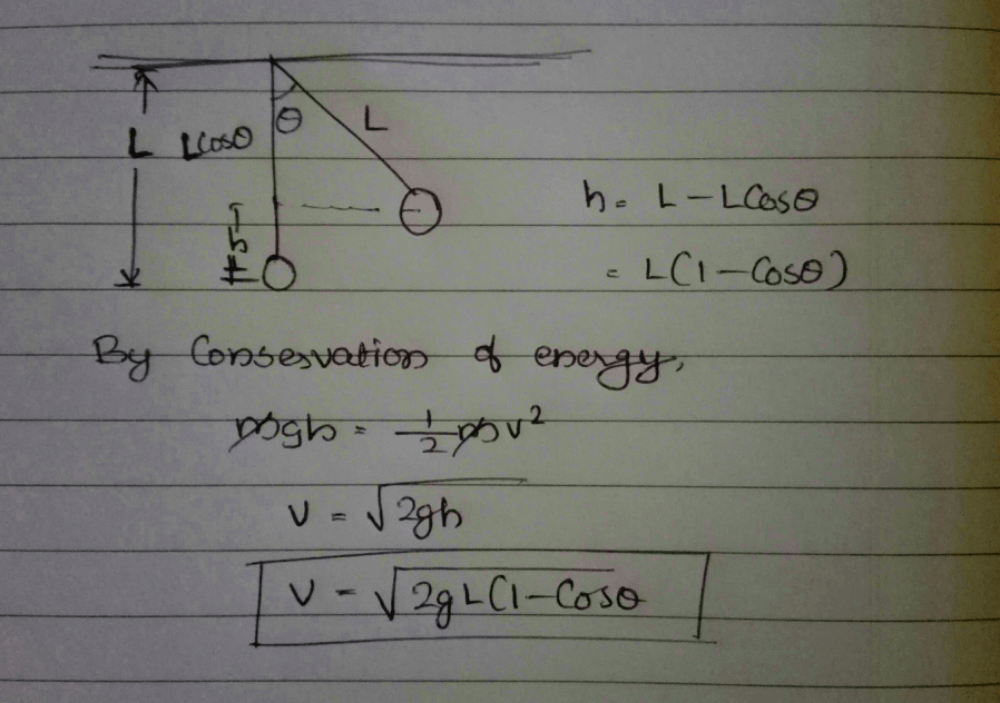 θ L
L Lcosθ
h
h = L - LCosθ
= L(1 - Cosθ)
By Conservation of energy,
mgh = 1/2 mv²
v = √2gh
v = √2gL(1-Cosθ